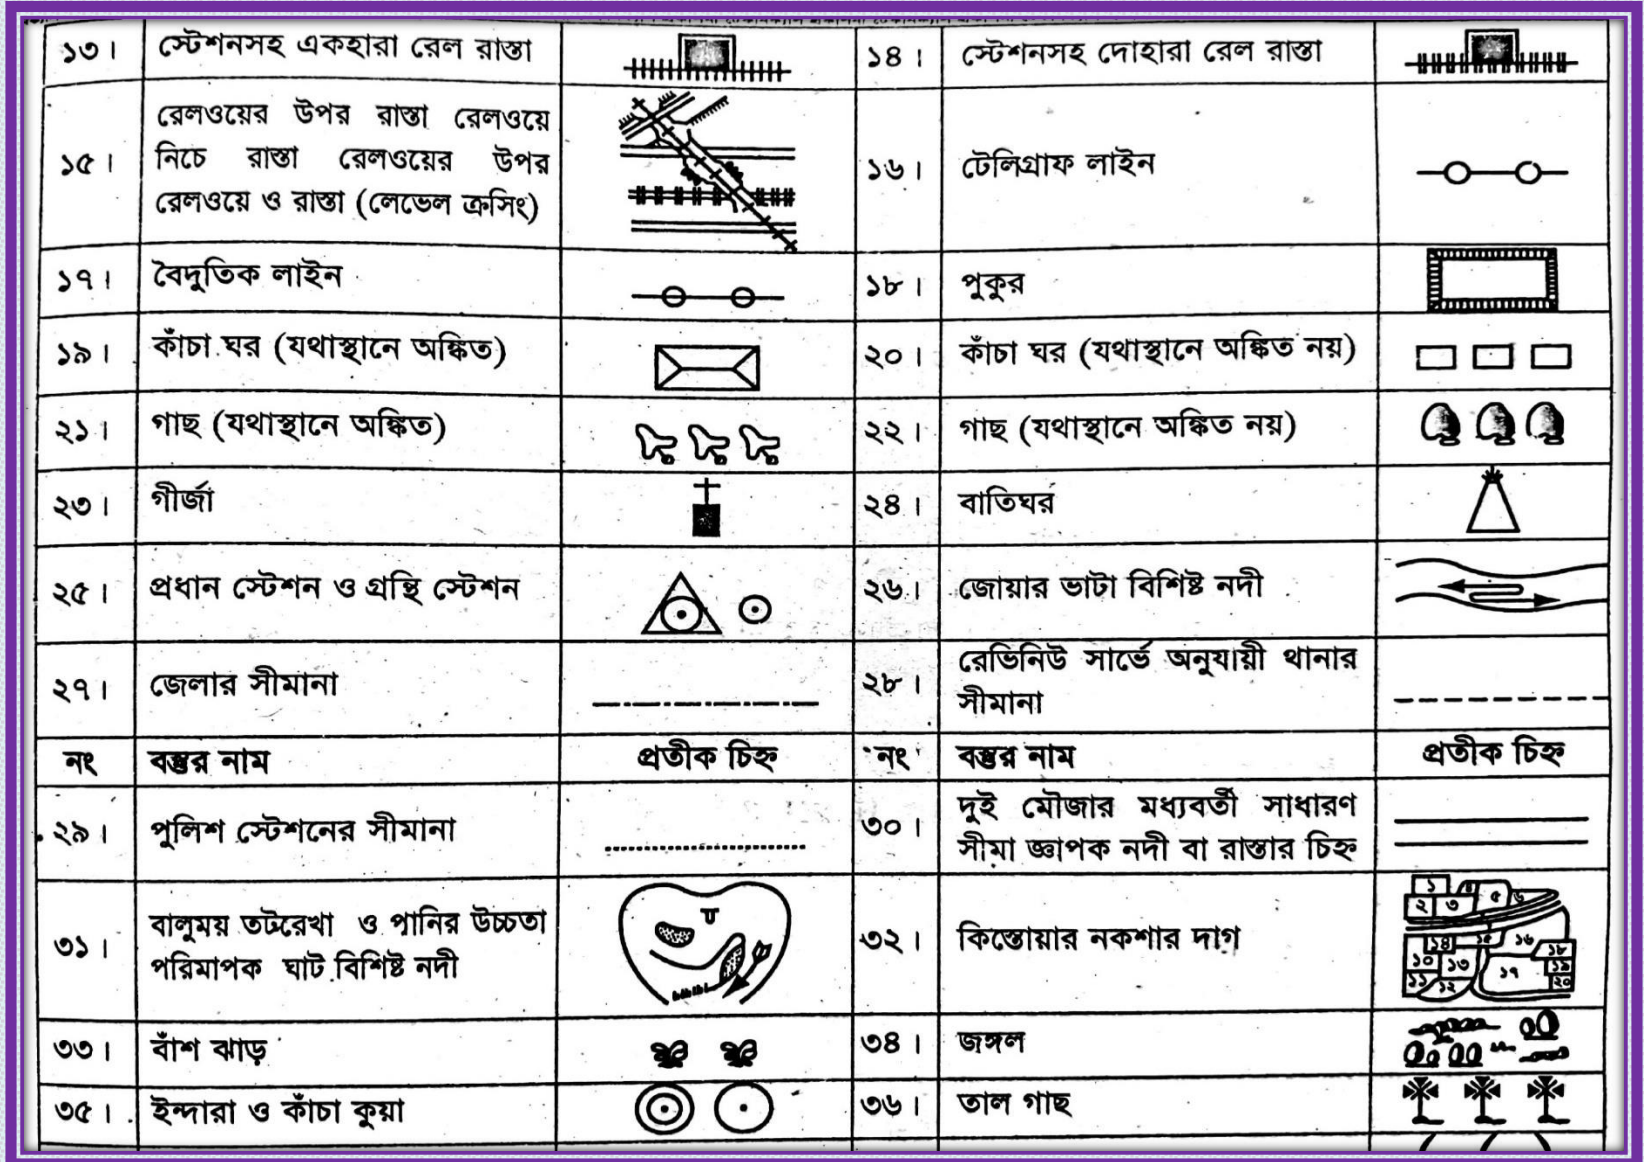 ১৩। স্টেশনসহ একহারা রেল রাস্তা
১৪। স্টেশনসহ দোহারা রেল রাস্তা
১৫।
রেলওয়ের উপর রাস্তা রেলওয়ে
নিচে রাস্তা রেলওয়ের উপর
রেলওয়ে ও রাস্তা (লেভেল ক্রসিং)
১৬। টেলিগ্রাফ লাইন
১৭। বৈদুতিক লাইন
১৮। পুকুর
১৯। কাঁচা ঘর (যথাস্থানে অঙ্কিত)
২০। কাঁচা ঘর (যথাস্থানে অঙ্কিত নয়)
২১। গাছ (যথাস্থানে অঙ্কিত)
২২। গাছ (যথাস্থানে অঙ্কিত নয়)
২৩। গীর্জা
২৪। বাতিঘর
২৫। প্রধান স্টেশন ও গ্রন্থি স্টেশন
২৬। জোয়ার ভাটা বিশিষ্ট নদী
২৭। জেলার সীমানা
২৮।
রেভিনিউ সার্ভে অনুযায়ী থানার
সীমানা
নং বস্তুর নাম প্রতীক চিহ্ন নং বস্তুর নাম প্রতীক চিহ্ন
২৯। পুলিশ স্টেশনের সীমানা
৩০।
দুই মৌজার মধ্যবর্তী সাধারণ
সীমা জ্ঞাপক নদী বা রাস্তার চিহ্ন
৩১।
বালুময় তটরেখা ও পানির উচ্চতা
পরিমাপক ঘাট বিশিষ্ট নদী
৩২। কিস্তোয়ার নকশার দাগ
১ ৪ ৫ ৬
২ ৩
১৪ ১৫ ১৬ ১৮
১০ ১৩ ১৭ ১৯
১১ ১২ ২০
৩৩। বাঁশ ঝাড়
৩৪। জঙ্গল
৩৫। ইন্দারা ও কাঁচা কুয়া
৩৬। তাল গাছ